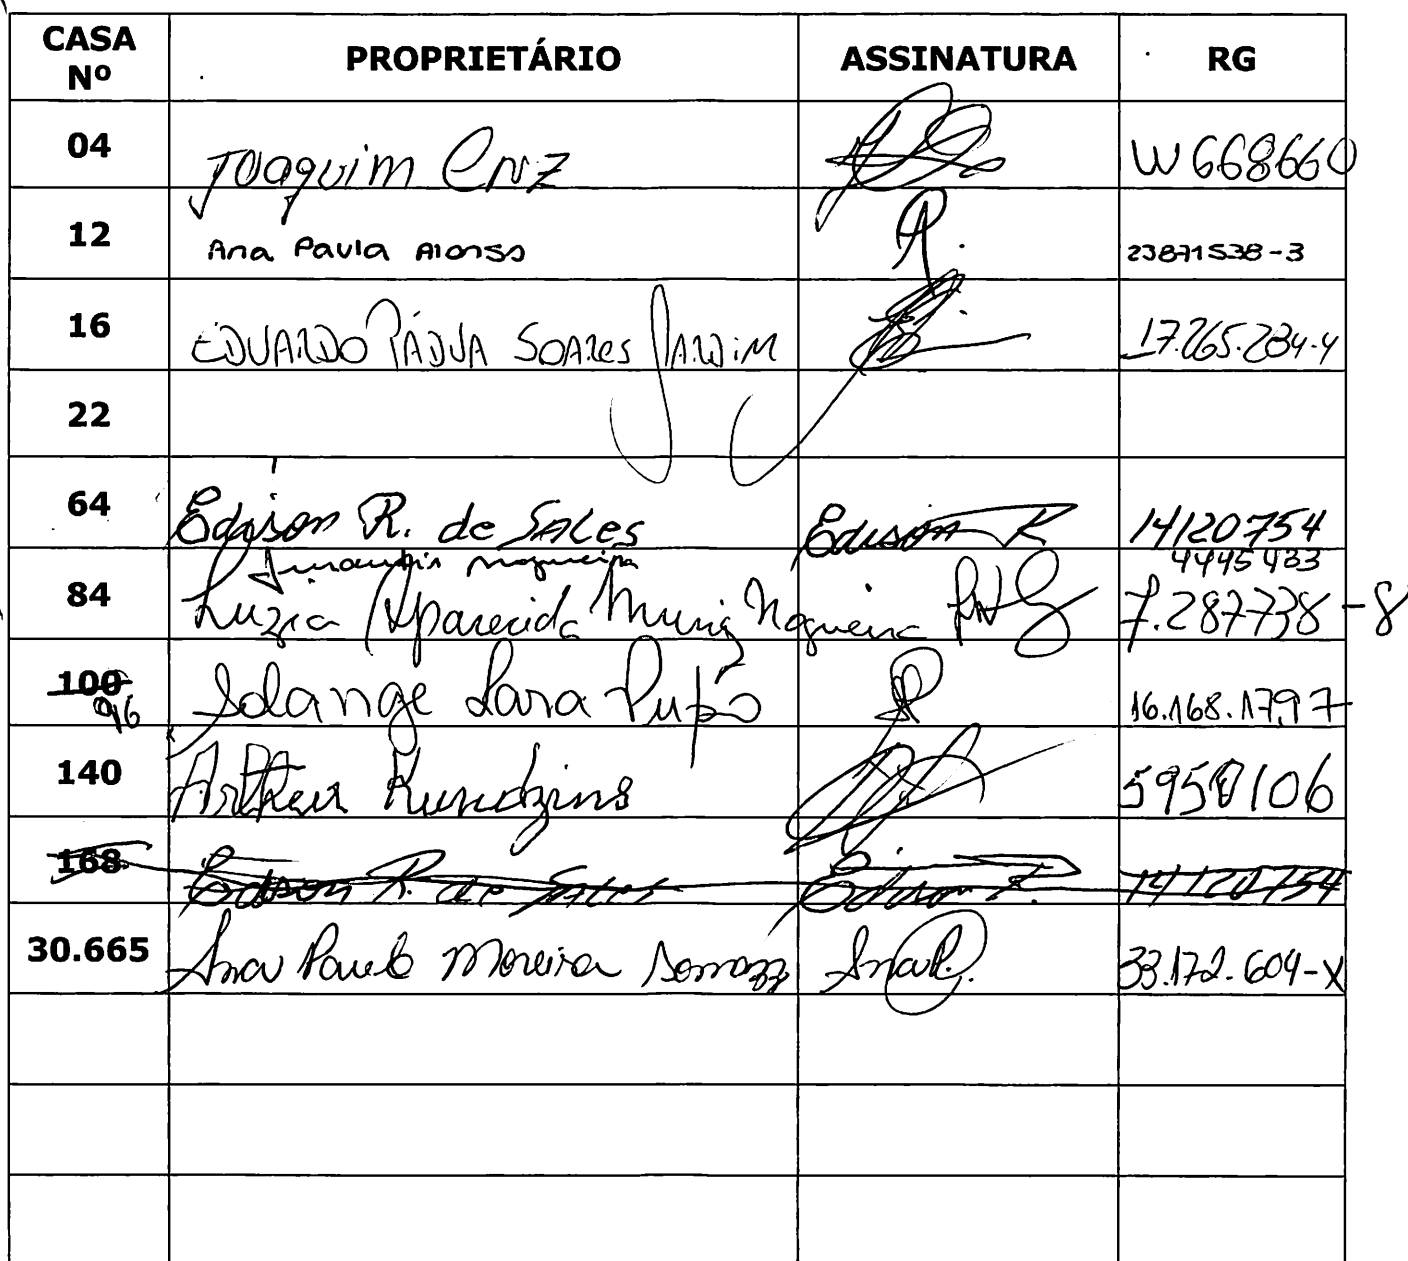 CASA Nº PROPRIETÁRIO ASSINATURA RG
04 Joaquim Cruz W668660
12 Ana Paula Alonso 23871538-3
16 EDUARDO PÁDUA SOARES JARDIM 17.265.284-4
22
64 Edison R. de Sales Edison R 14120754
nogueira 4445433
84 Luzia Aparecida Muniz Nogueira 7.287738-8
100
96 Solange Lara Pupo 16.168.179,7
140 Arthur Kundzins 106
168 Edison R. de Sales Edison R. 14120754
30.665 Ana Paula Moreira Ana P. 33.172.604-X